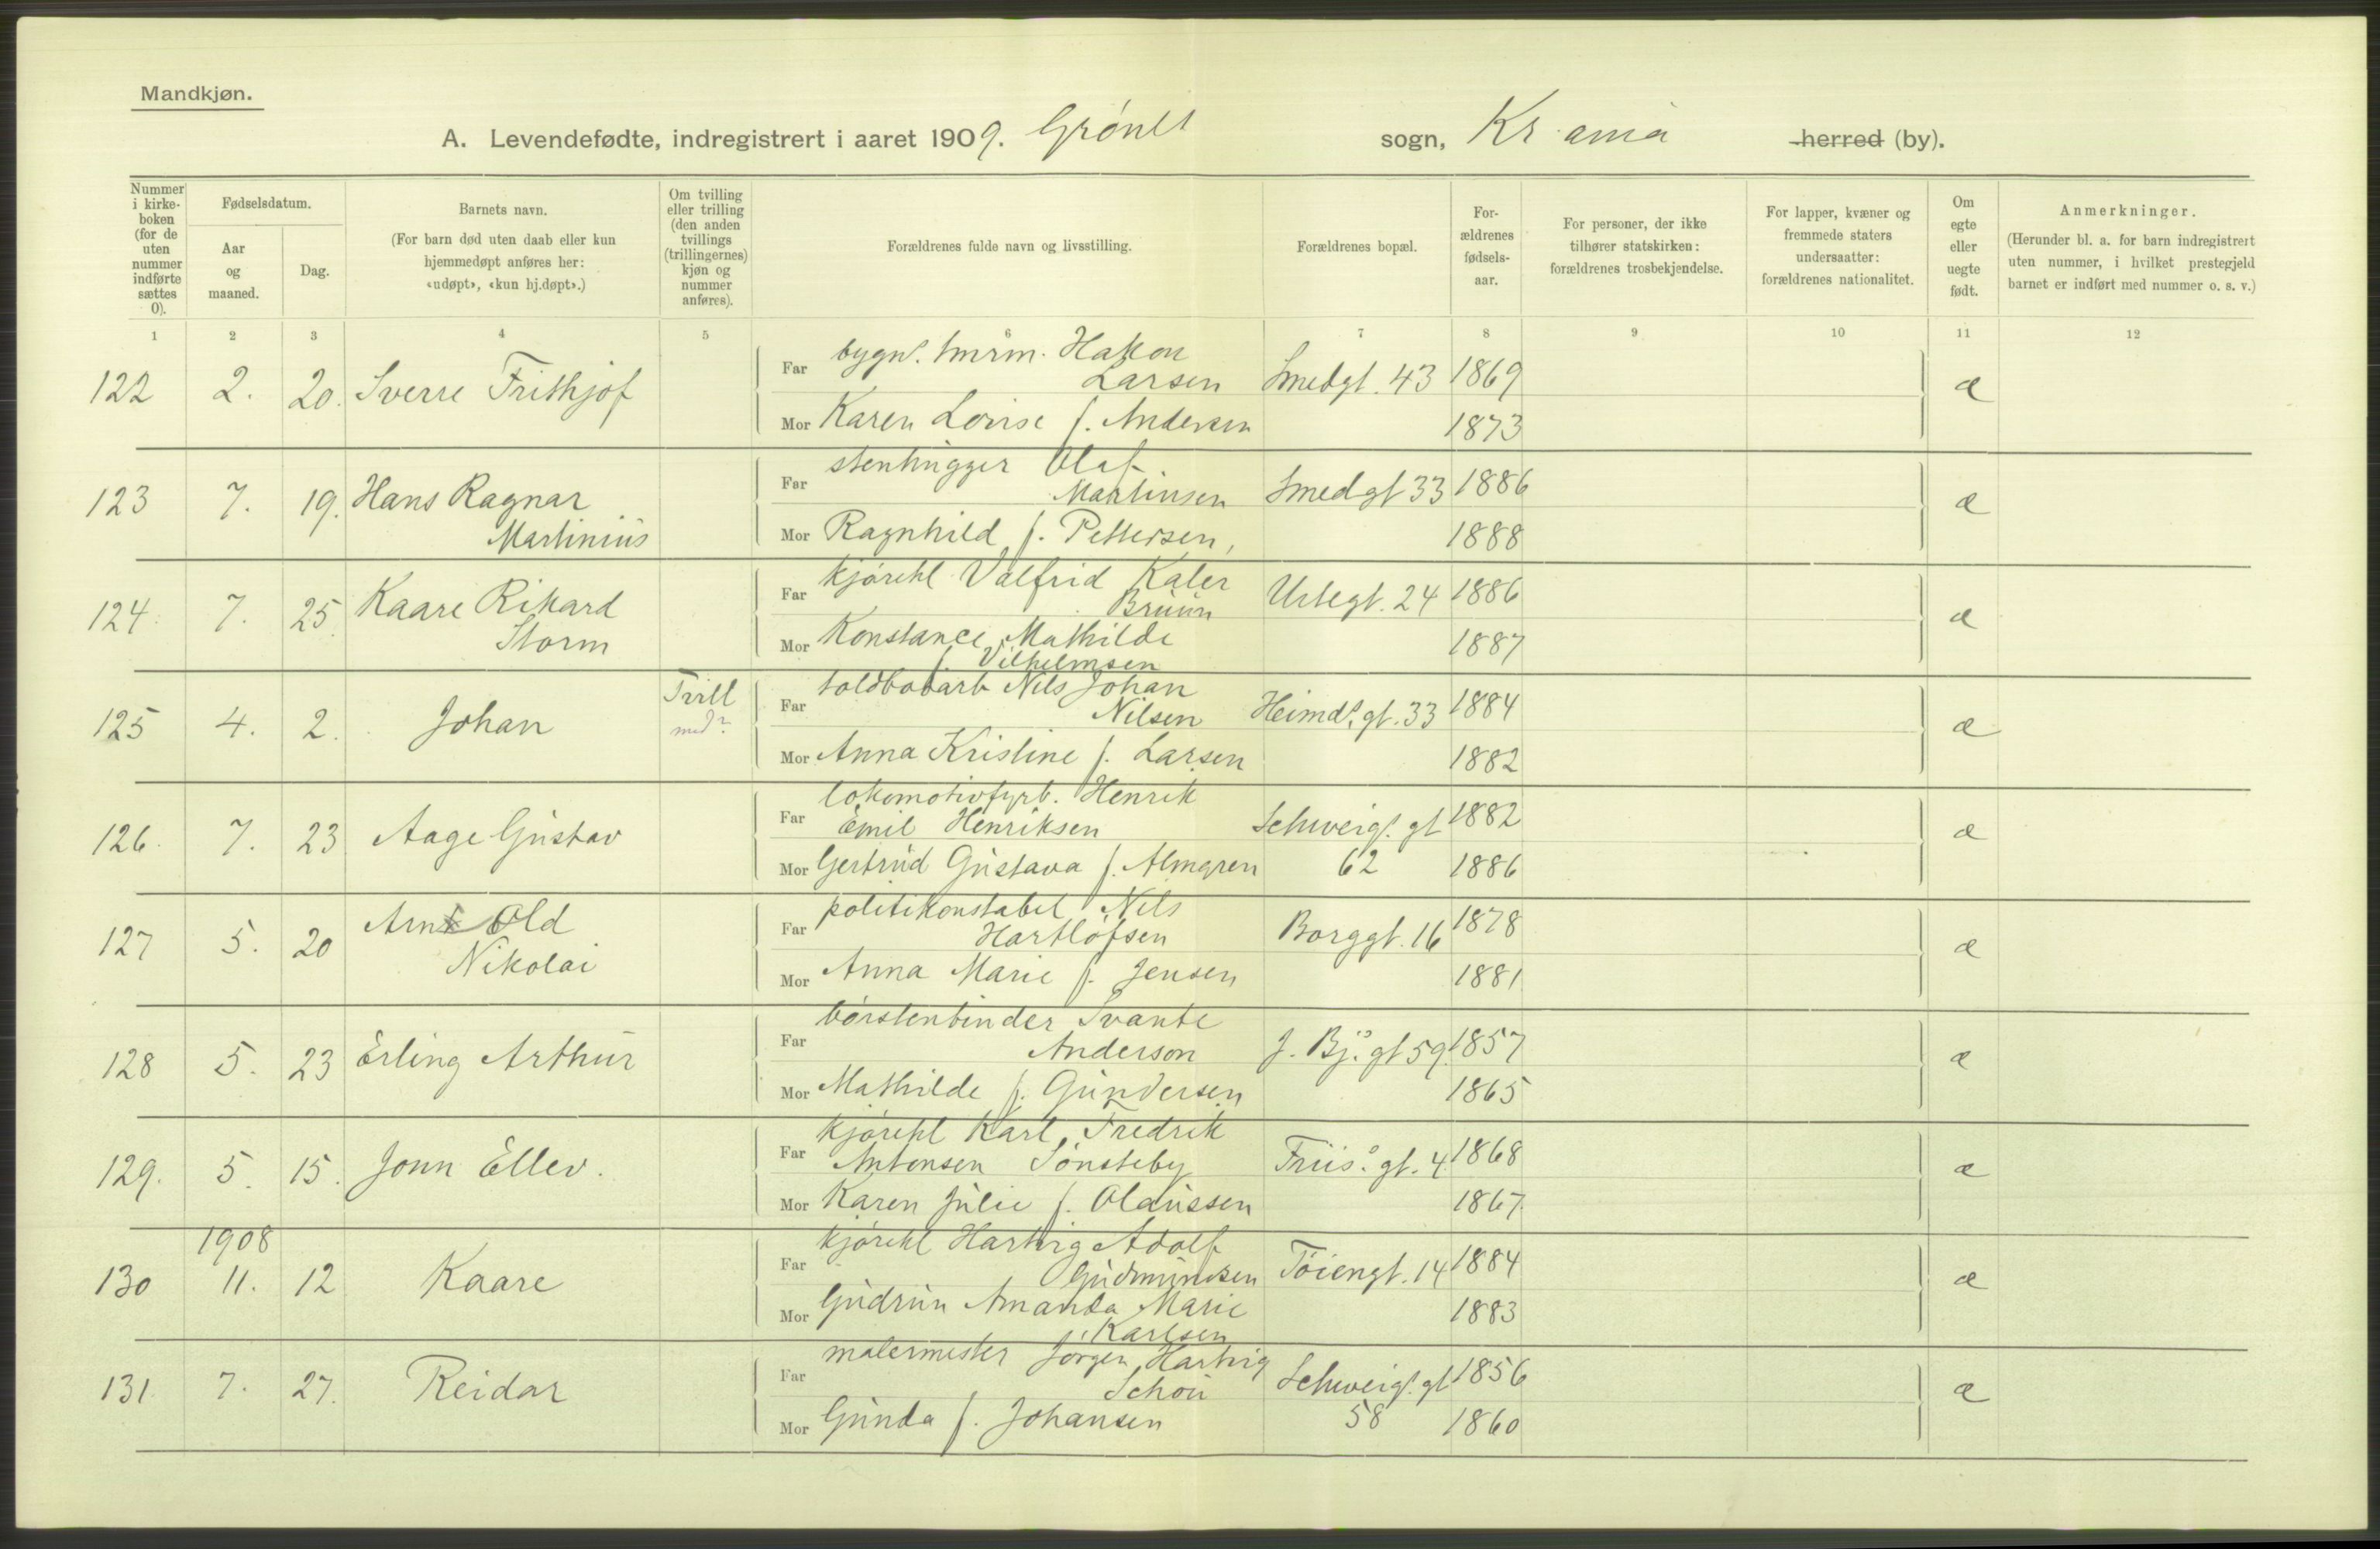 Mandkjøn.
A. Levendefødte, indregistrert i aaret 1909. Grønl sogn, Kr ania herred (by).
Nummer i kirke-boken (for de uten nummer indførte sættes 0).
Fødselsdatum.
Aar og maaned.
Dag.
Barnets navn.
(For barn død uten daab eller kun hjemmedøpt anføres her: «udøpt», «kun hj.døpt».)
Om tvilling eller trilling (den anden tvillings (trillingernes) kjøn og nummer anføres).
Forældrenes fulde navn og livsstilling.
Forældrenes bopæl.
For-ældrenes fødsels-aar.
For personer, der ikke tilhører statskirken: forældrenes trosbekjendelse.
For lapper, kvæner og fremmede staters undersaatter: forældrenes nationalitet.
Om egte eller uegte født.
Anmerkninger.
(Herunder bl. a. for barn indregistrert uten nummer, i hvilket prestegjeld barnet er indført med nummer o. s. v.)
1 2 3 4 5 6 7 8 9 10 11 12
122 2. 20. Sverre Frithjof
Far bygn. tmrm. Hakon
Larsen Smedgt. 43 1869 æ
Mor Karen Lovise f. Andersen 1873
123 7. 19. Hans Ragnar
Martinius
Far stenhugger Olaf
Martinsen Smedgt 33 1886 æ
Mor Ragnhild f. Pettersen, 1888
124. 7. 25. Kaare Rikard
Storm
Far kjørekl Valfrid Kaler
Bruun Urtegt. 24 1886 æ
Mor Konstance Mathilde
f. Vilhelmsen 1887
125 4. 2. Johan Tvill
Far toldbodarb Nils Johan
Nilsen Heimd. gt. 33 1884 æ
Mor Anna Kristine f. Larsen 1882
126. 7. 23 Aage Gustav
Far lokomotivfyrb. Henrik
Emil Henriksen Schweig. gt 1882 æ
Mor Gertrud Gustava f. Almgren 62 1886
127 5. 20 Arnold
Nikolai
Far politikonstabel Nils
Hartløfsen Borggt. 16 1878 æ
Mor Anna Marie f. Jensen 1881
128 5. 23 Erling Arthur
Far børstenbinder Svante
Anderson J. Bj. gt 59. 1857 æ
Mor Mathilde f. Gundersen 1865
129. 5. 15. Jonn Ellev.
Far kjørekl Karl Fredrik
Antonsen Sønsteby Friis. gt. 4 1868 æ
Mor Karen Julie f. Olaussen 1867
1908
130 11. 12 Kaare
Far kjørekl Hartvig Adolf
Gudmundsen Tøiengt. 14 1884 æ
Mor Gudrun Amanda Marie
f. Karlsen 1883
131. 7. 27. Reidar
Far malermester Jørgen Hartvig
Schou Schweig. gt 1856 æ
Mor Gunda f. Johansen 58 1860